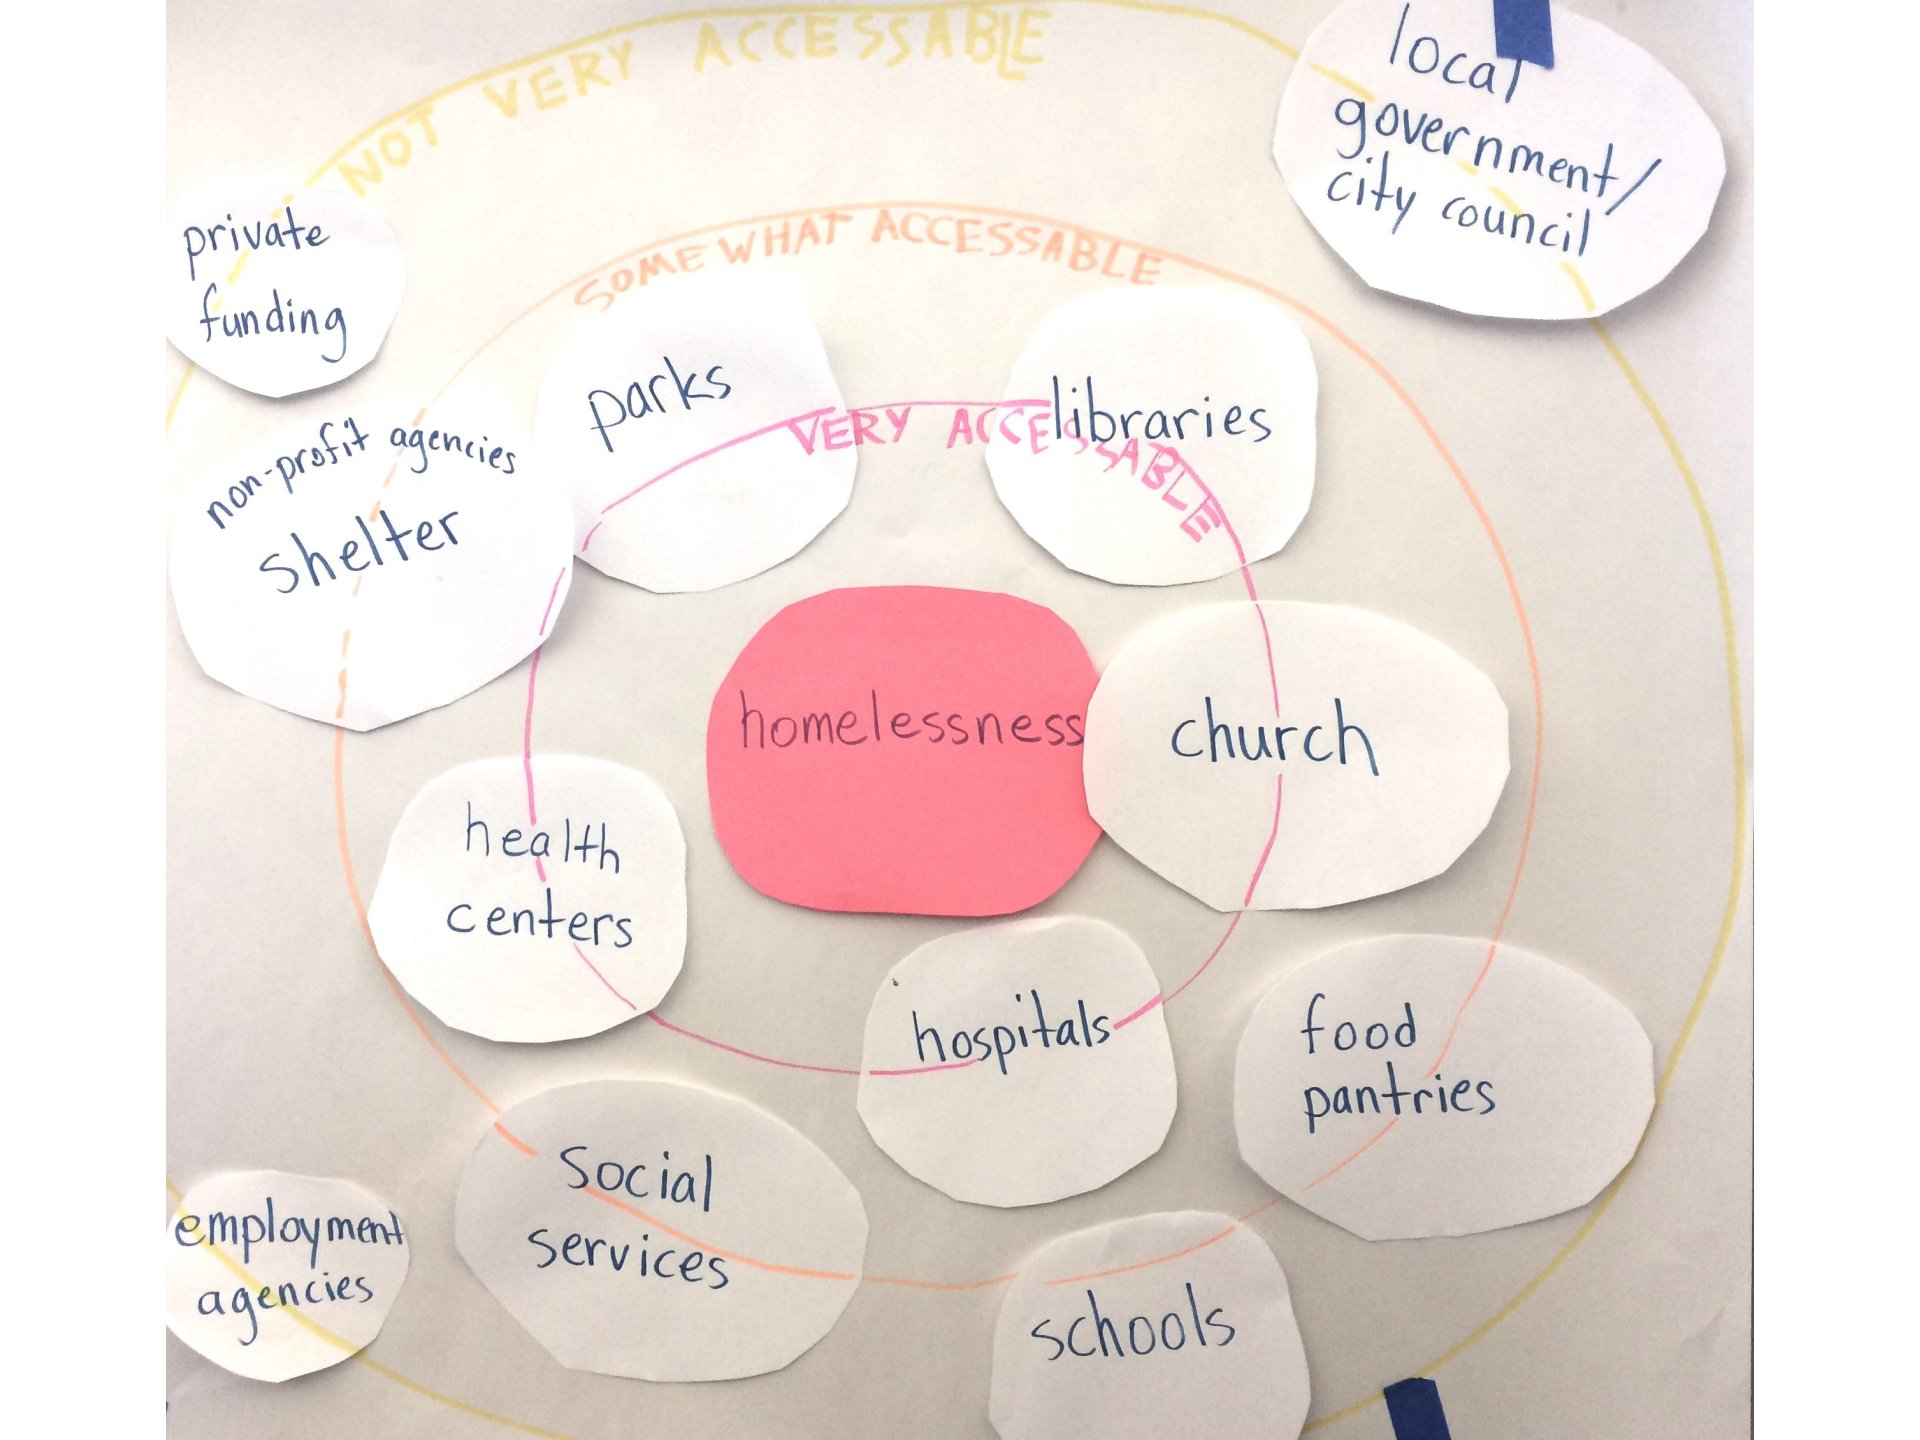 NOT VERY ACCESSABLE
local
government/
city council
private
funding
SOMEWHAT ACCESSABLE
parks
libraries
VERY ACCESSABLE
non-profit agencies
shelter
homelessness
church
health
centers
hospitals
food
pantries
social
services
employment
agencies
schools